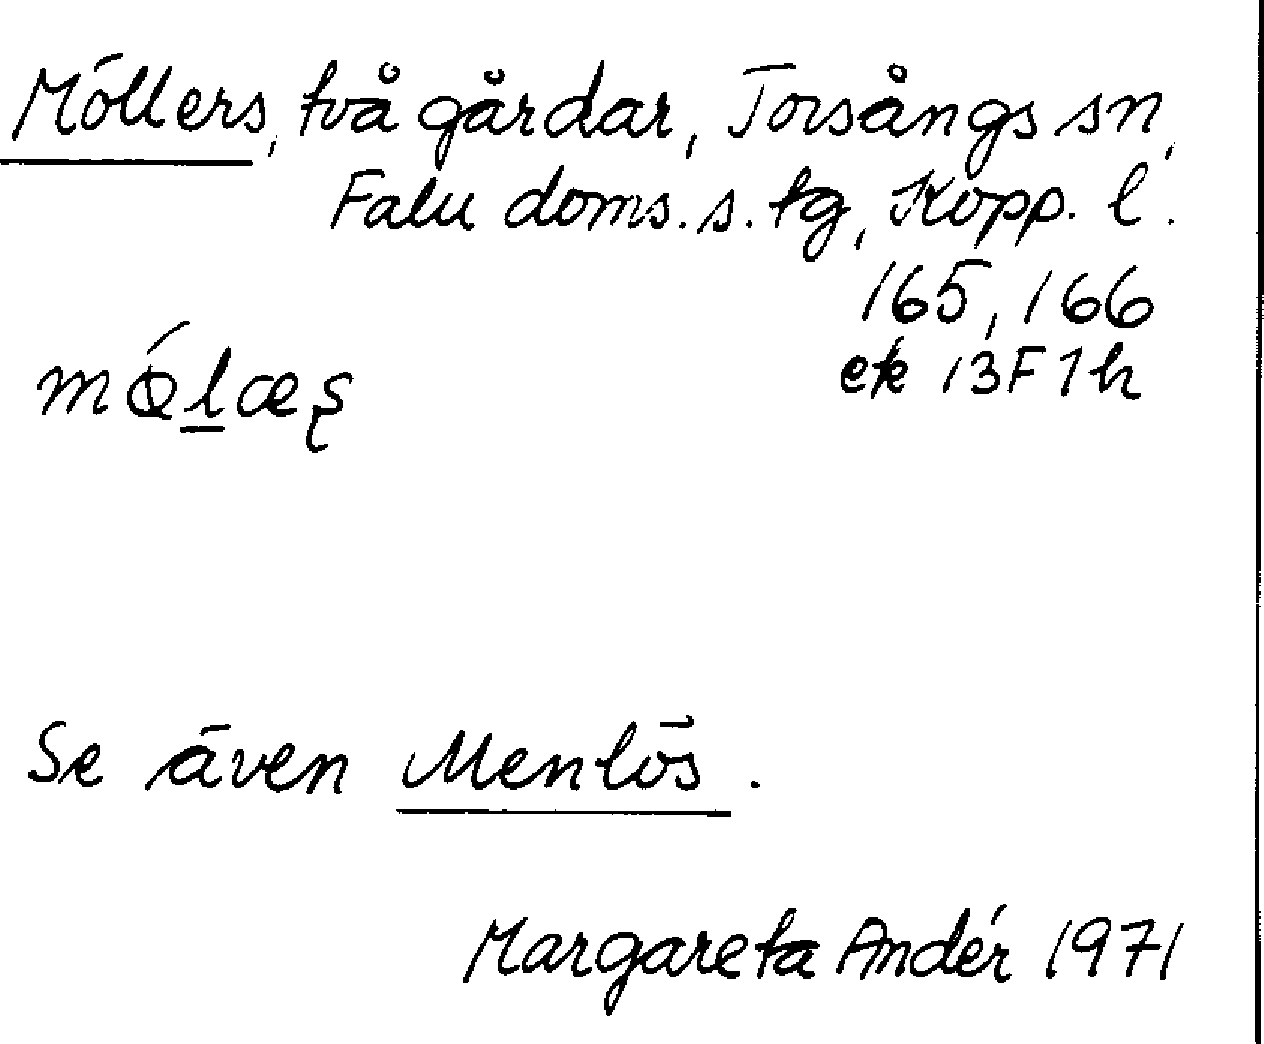 Möllers, två gårdar, Torsångs sn,
Falu doms. s. tg, Kopp. l.
165, 166
ek 13F 7h
mǿl̲æş
Se även Menlös.
Margareta Andér 1971